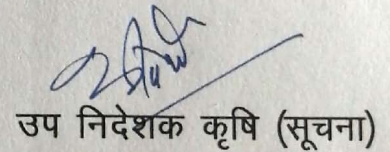 उप निदेशक कृषि (सूचना)